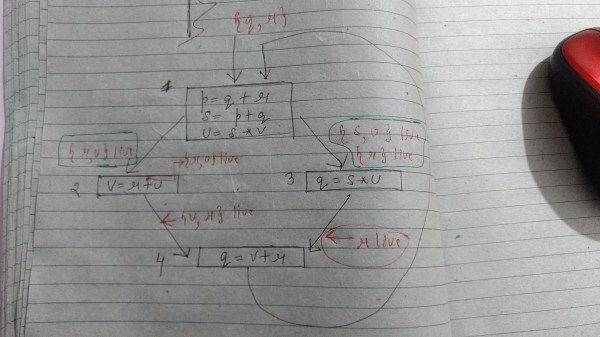 {q, r}
1
p = q + r
s = p + q
u = s * v
{r, u} live
{s, u} live
{r} live
{r, u} live
2
v = r + u
3
q = s * u
{v, r} live
r live
4
q = v + r